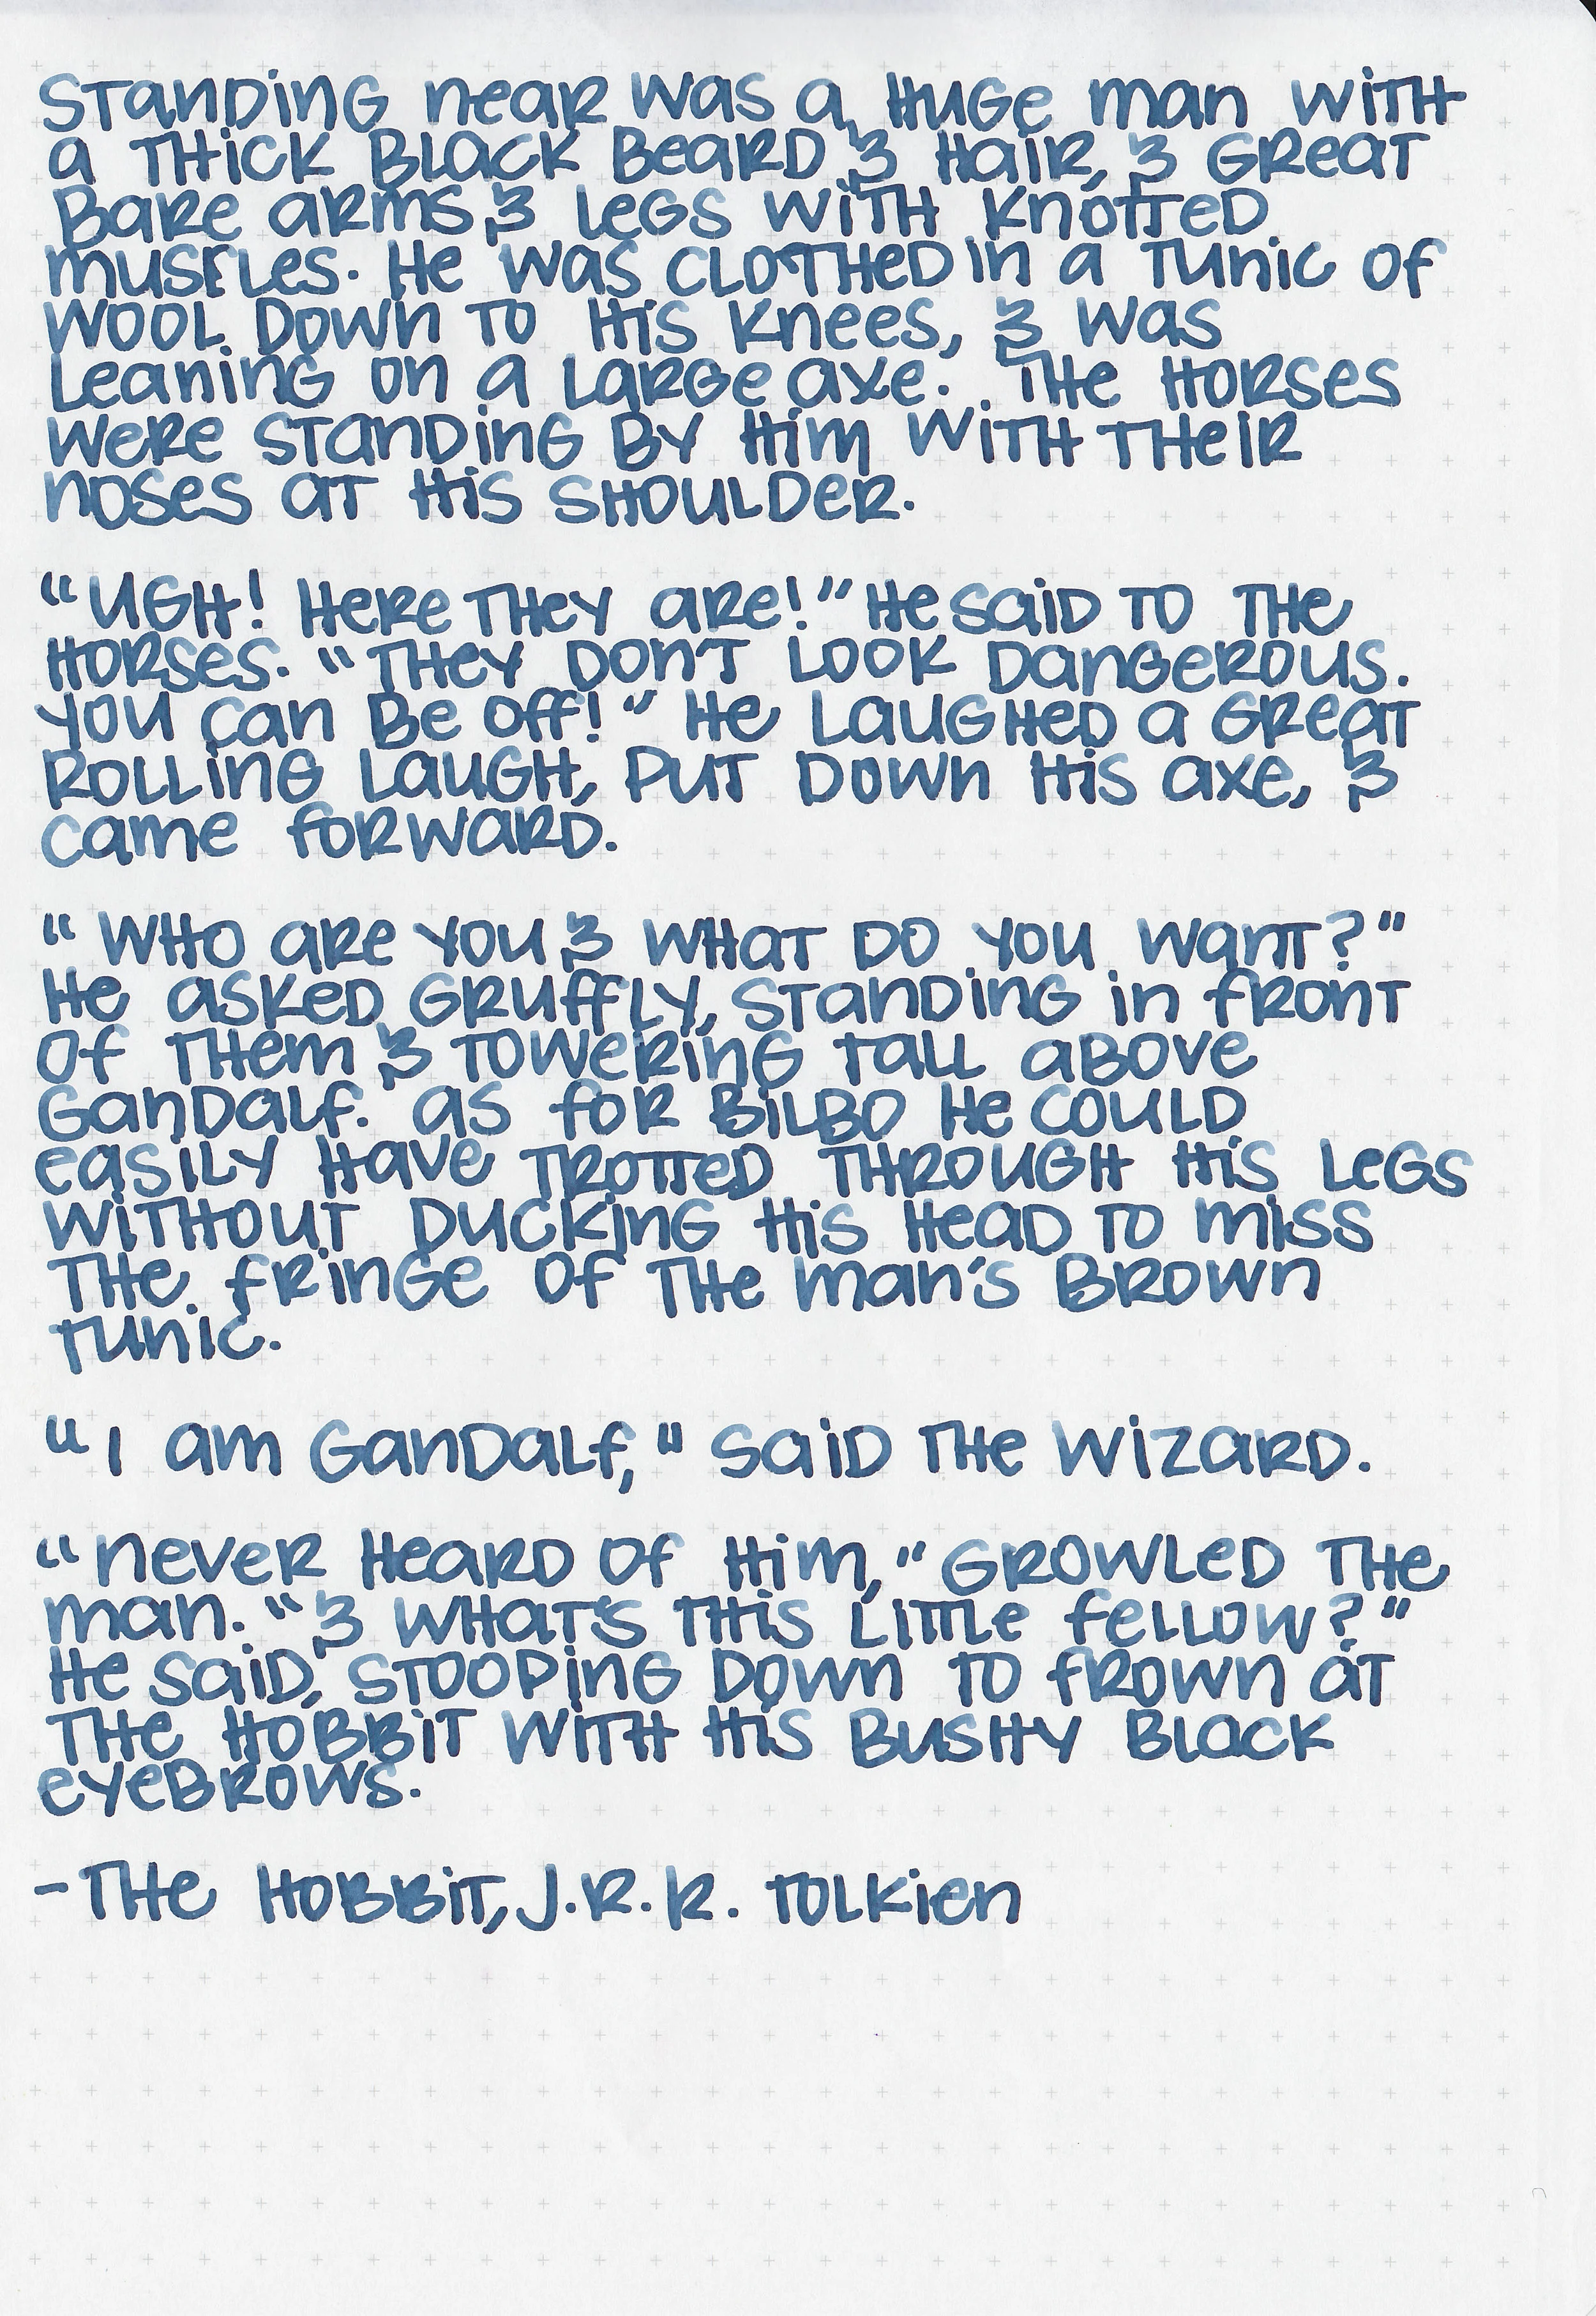 Standing near was a huge man with
a thick black beard & hair, & great
bare arms & legs with knotted
muscles. He was clothed in a tunic of
wool down to his knees, & was
leaning on a large axe. The horses
were standing by him with their
noses at his shoulder.
"Ugh! Here they are!" He said to the
horses. "They don't look dangerous.
You can be off!" He laughed a great
rolling laugh, put down his axe, &
came forward.
"Who are you & what do you want?"
He asked gruffly, standing in front
of them & towering tall above
Gandalf. As for Bilbo he could
easily have trotted through his legs
without ducking his head to miss
the fringe of the man's brown
tunic.
"I am Gandalf," said the wizard.
"Never heard of him," growled the
man. "& what's this little fellow?"
He said, stooping down to frown at
the hobbit with his bushy black
eyebrows.
-The Hobbit, J.R.R. Tolkien